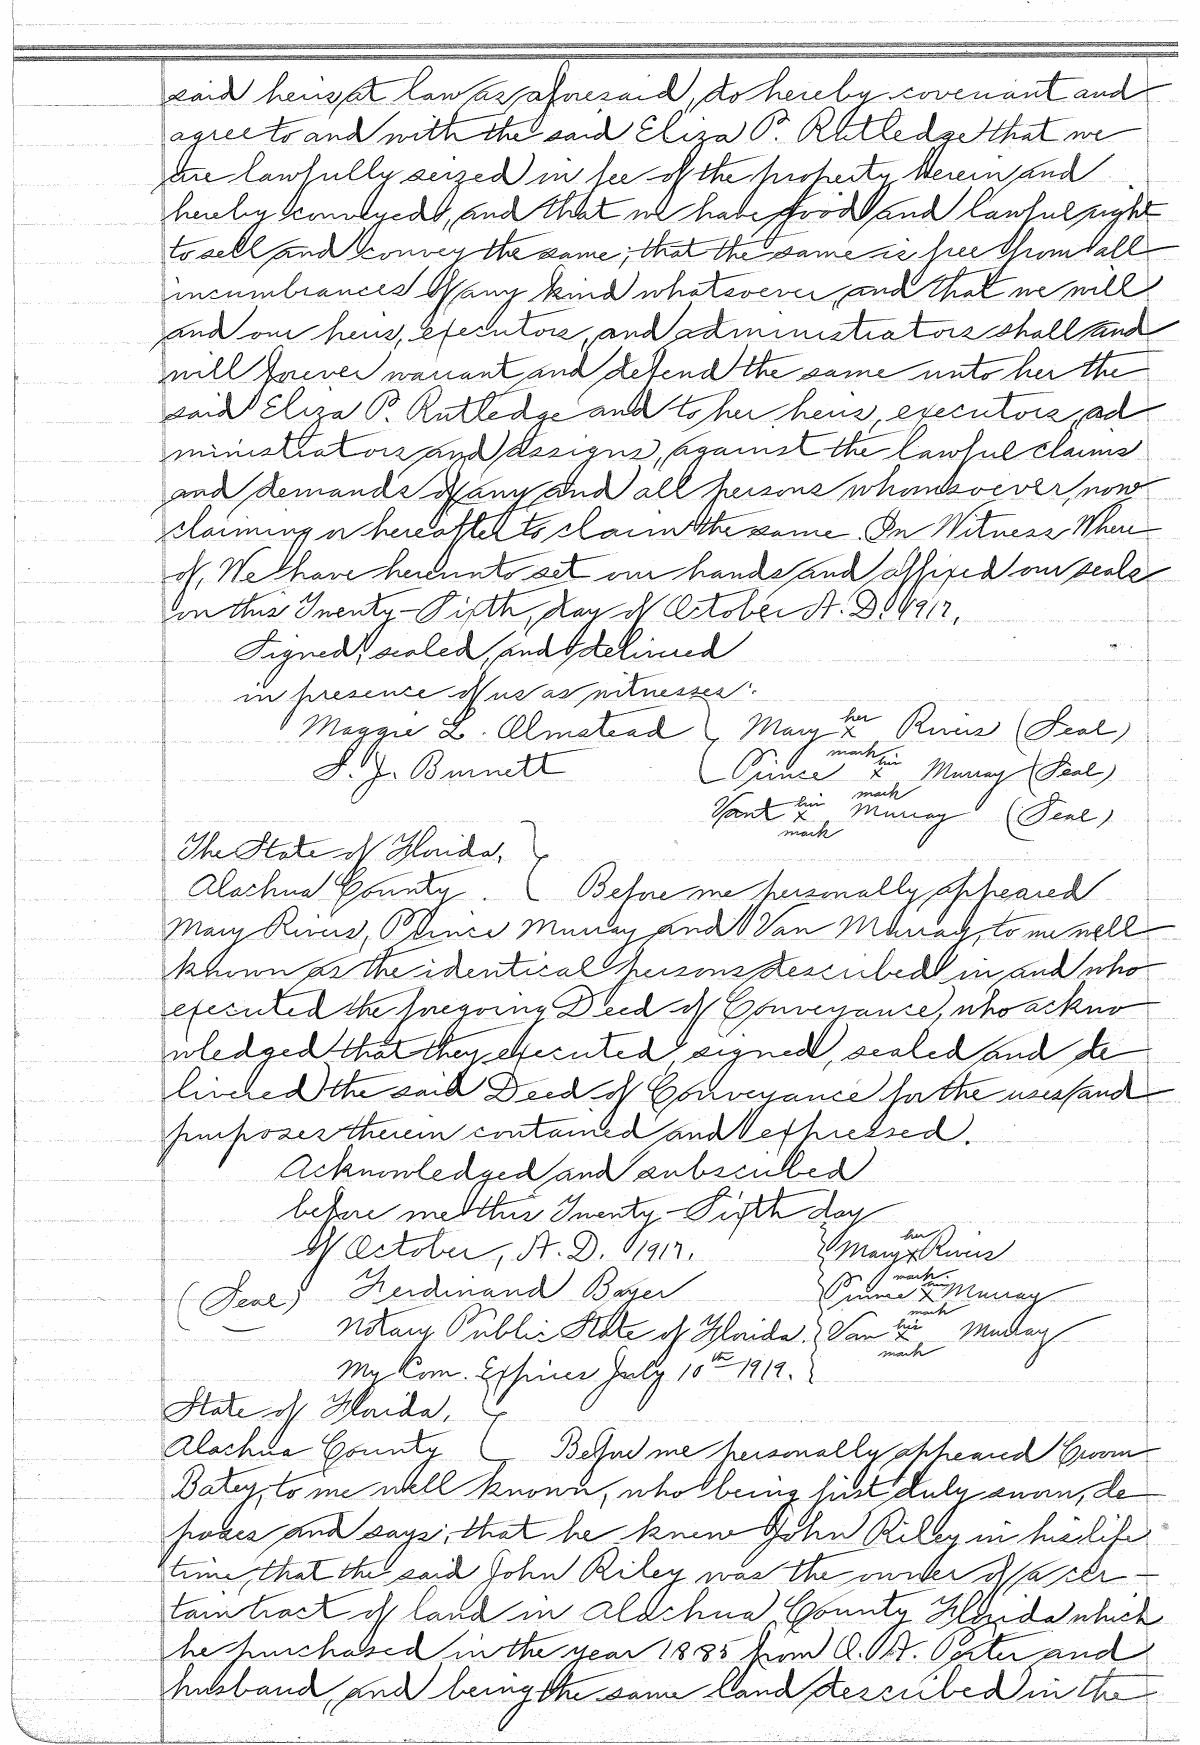 said heirs at law as aforesaid, do hereby covenant and
agree to and with the said Eliza P. Rutledge that we
are lawfully seized in fee of the property herein and
hereby conveyed, and that we have good and lawful right
to sell and convey the same; that the same is free from all
incumbrances of any kind whatsoever, and that we will
and our heirs, executors, and administrators shall and
will forever warrant and defend the same unto her the
said Eliza P. Rutledge and to her heirs, executors, ad
ministrators and assigns, against the lawful claims
and demands of any and all persons whomsoever, now
claiming or hereafter to claim the same. In Witness Where
of, We have hereunto set our hands and affixed our seals
on this Twenty-Fifth, day of October A. D. 1917.
Signed, sealed, and delivered
in presence of us as witnesses:
Maggie L. Olmstead } Mary her x mark Rivers (Seal)
S. J. Burnett { Prince his x mark Murray (Seal)
Vant his x mark Murray (Seal)
The State of Florida, }
Alachua County. { Before me personally appeared
Mary Rivers, Prince Murray and Van Murray, to me well
known as the identical persons described in, and who
executed the foregoing Deed of Conveyance, who ackno
wledged that they executed, signed, sealed and de
livered the said Deed of Conveyance for the uses and
purposes therein contained and expressed.
Acknowledged and subscribed
before me this Twenty-Fifth day
of October, A. D. 1917. } Mary her x mark Rivers
(Seal) Ferdinand Bayer } Prince his x mark Murray
Notary Public State of Florida. } Van his x mark Murray
My Com. Expires July 10th 1919. }
State of Florida, }
Alachua County { Before me personally appeared Croom
Batey, to me well known, who being first duly sworn, de
poses and says; that he knew John Riley in his life
time, that the said John Riley was the owner of a cer-
tain tract of land in Alachua County Florida which
he purchased in the year 1885 from O. A. Porter and
husband, and being the same land described in the